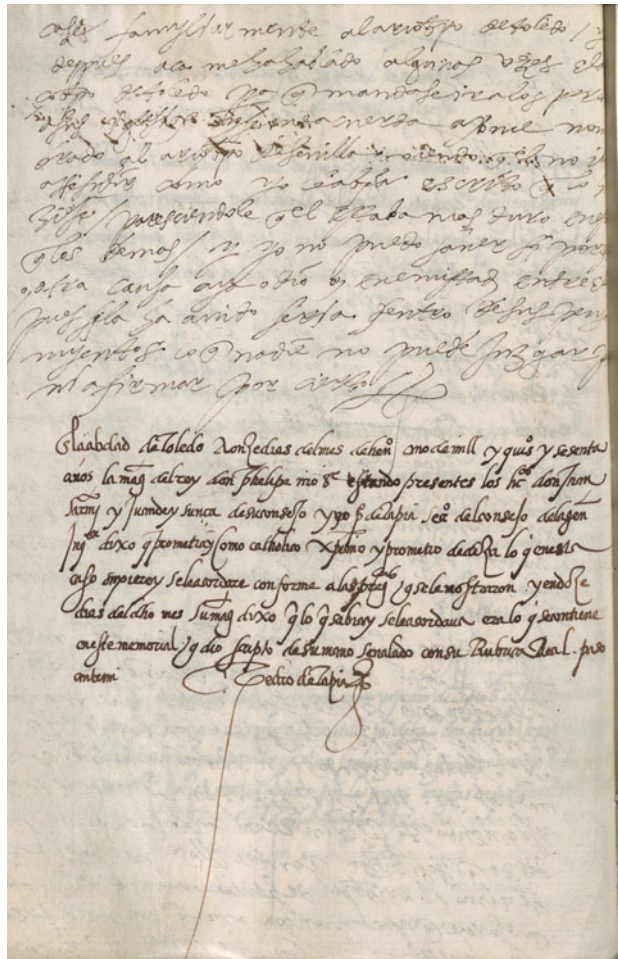 casas familiarmente al arçobpo de toledo / y
despues aca me ha hablado algunas vezes el a
çobpo de toledo pa q mandase ir a los per
cuenta a ponie non
brado al arçobpo de sevilla no i
a residir como yo le abia escrito q lo
hiziese / paresciendole q el estaba mas turo en
q los demas / y yo no puedo saver si por
otra causa aya odio o enemistad entre
pues si la ha avido seria dentro de sus pens
amyentos lo q nadie no puede juzgar
ni afirmar por cierto
En la çibdad de Toledo a onze dias del mes de hen° año de mill y quis y sesenta
años la mag del rey don phelipe nro s.r estando presentes los don Juan
y su consejo y yo p° de tapia sec° del consejo de la gen
Inqon dixo q prometia como catholico xpiano y prometio dezir lo q en este
caso supiere y se le acordare conforme a las preg q se le mostraron y en doze
dias del dho mes su mag dixo q lo q sabia y se le acordava era lo q se contiene
en este memorial / q dio scripto de su mano señalado con su Rubrica Real - paso
ante mi Pedro de tapia